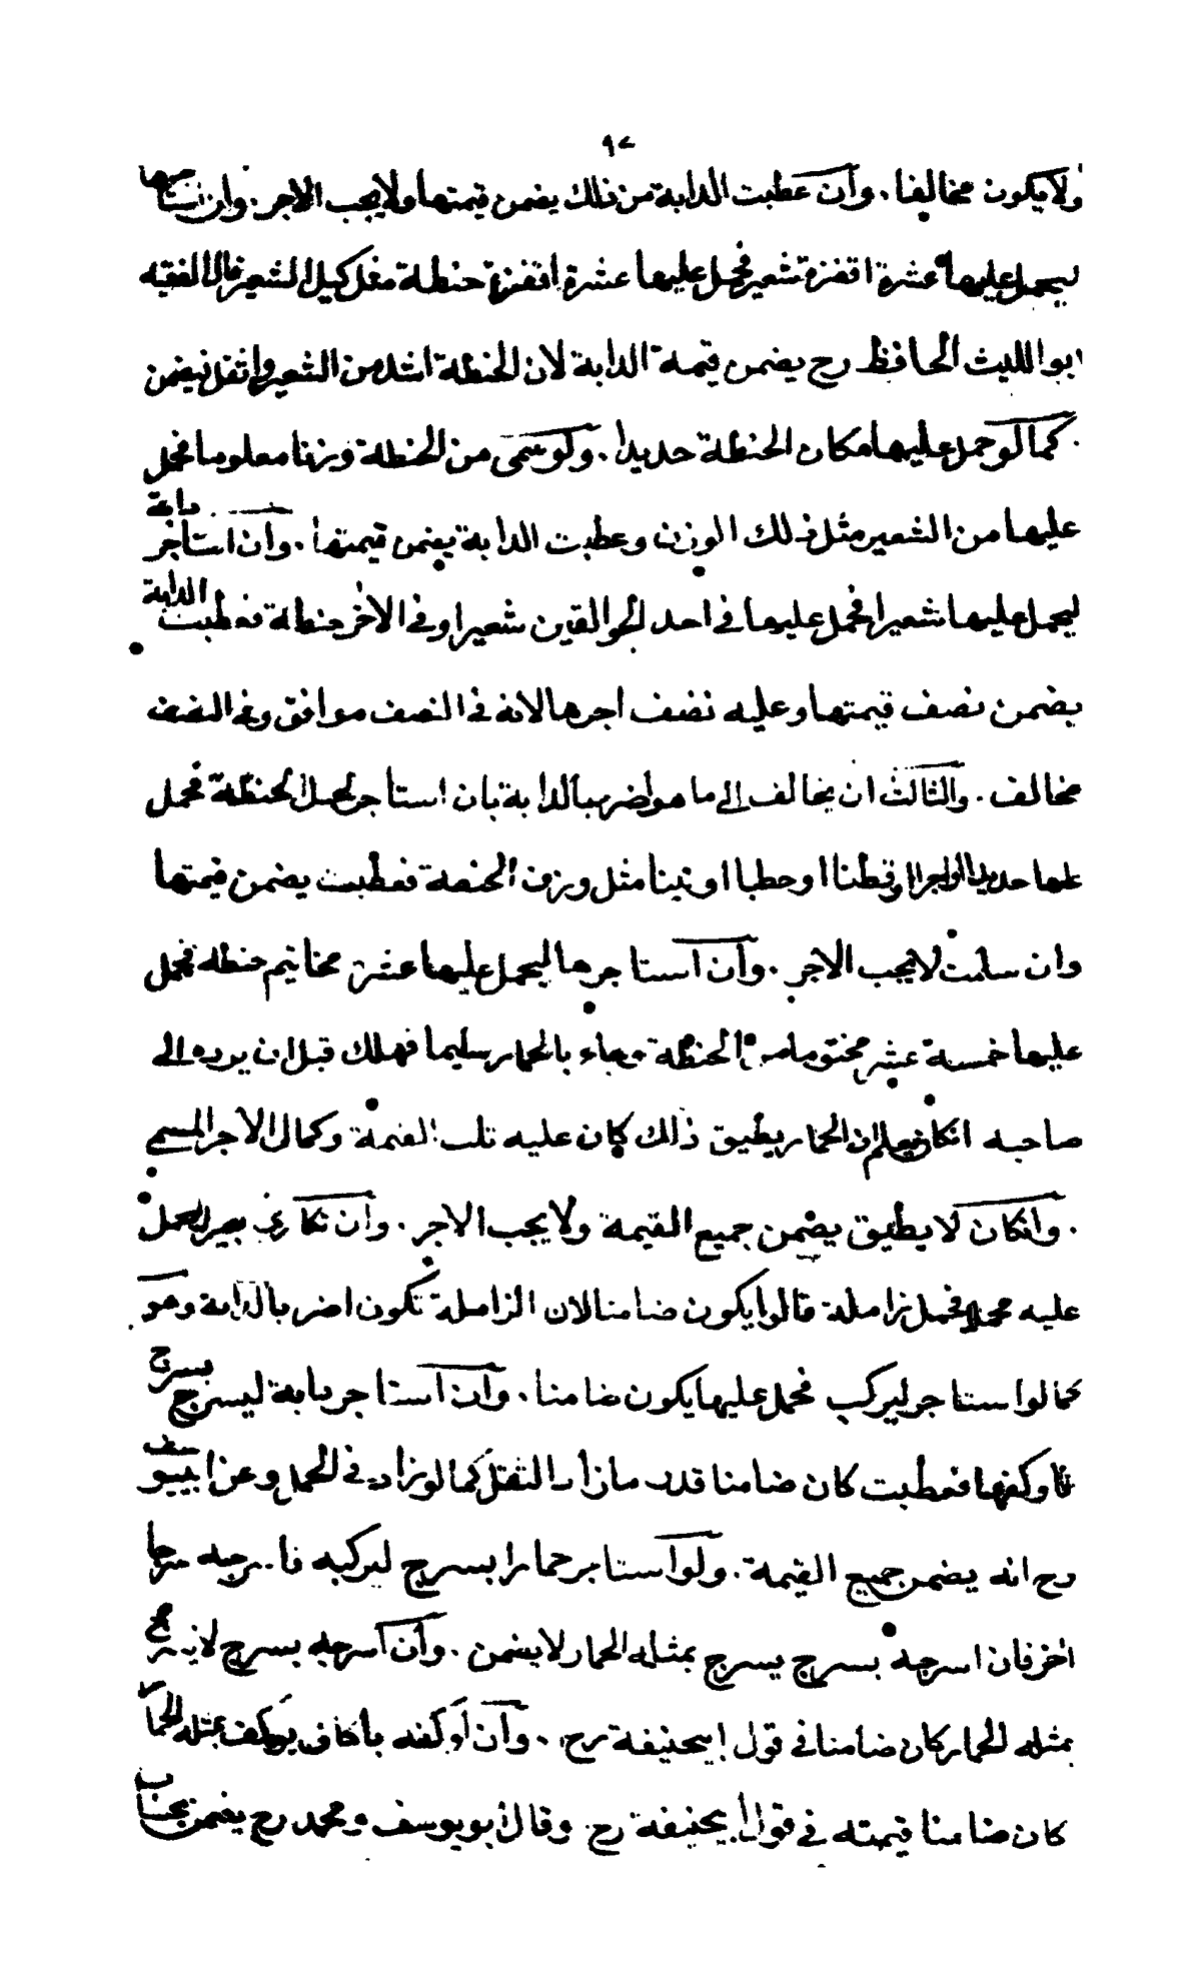 ٩٢
ولا يكون مخالفا . وان عطبت الدابة من ذلك يضمن قيمتها ولا يجب الاجر . وان استاجرها
ليحمل عليها عشرة اقفزة شعير فحمل عليها عشرة اقفزة حنطة مثل كيل الشعير قال الفقيه
ابو الليث الحافظ رح يضمن قيمة الدابة لان الحنطة اشد من الشعير واثقل فيضمن
. كما لو حمل عليها مكان الحنطة حديدا . ولو سمى من الحنطة وزنا معلوما فحمل
عليها من الشعير مثل ذلك الوزن وعطبت الدابة يضمن قيمتها . وان استاجر دابة
ليحمل عليها شعيرا فحمل عليها في احد الجوالقين شعيرا وفي الاخر حنطة فعطبت الدابة
يضمن نصف قيمتها وعليه نصف اجرها لانه في النصف موافق وفي النصف
مخالف . والثالث ان يخالف الى ما هو اضر بالدابة بان استاجر لحمل الحنطة فحمل
عليها حديدا او اجرا او قطنا او حطبا او تبنا مثل وزن الحنطة فعطبت يضمن قيمتها
وان سلمت لا يجب الاجر . وان استاجرها ليحمل عليها عشرة مخاتيم حنطة فحمل
عليها خمسة عشر مختوما من الحنطة وجاء بالحمار سليما فهلك قبل ان يرده الى
صاحبه انكان يعلم ان الحمار يطيق ذلك كان عليه ثلث القيمة وكمال الاجر المسمى
. وانكان لا يطيق يضمن جميع القيمة ولا يجب الاجر . وان تكارى بعير ليحمل
عليه محملا فحمل زاملة قالوا يكون ضامنا لان الزاملة تكون اضر بالدابة وهو
كما لو استاجر ليركب فحمل عليها يكون ضامنا . وان استاجر دابة ليسرج بسرج
فاوكفها فعطبت كان ضامنا قدر ما زاد الثقل كما لو زاد في الحمل وعن ابييوسف
رح انه يضمن جميع القيمة . ولو استاجر حمارا بسرج ليركبه فاسرجه سرجا
اخر فان اسرجه بسرج يسرج بمثله الحمار لا يضمن . وان اسرجه بسرج لا يسرج
بمثله الحمار كان ضامنا في قول ابيحنيفة رح . وان اوكفه باكاف يوكف بمثله الحمار
كان ضامنا قيمته في قول ابيحنيفة رح . وقال ابو يوسف ومحمد رح يضمن بحساب